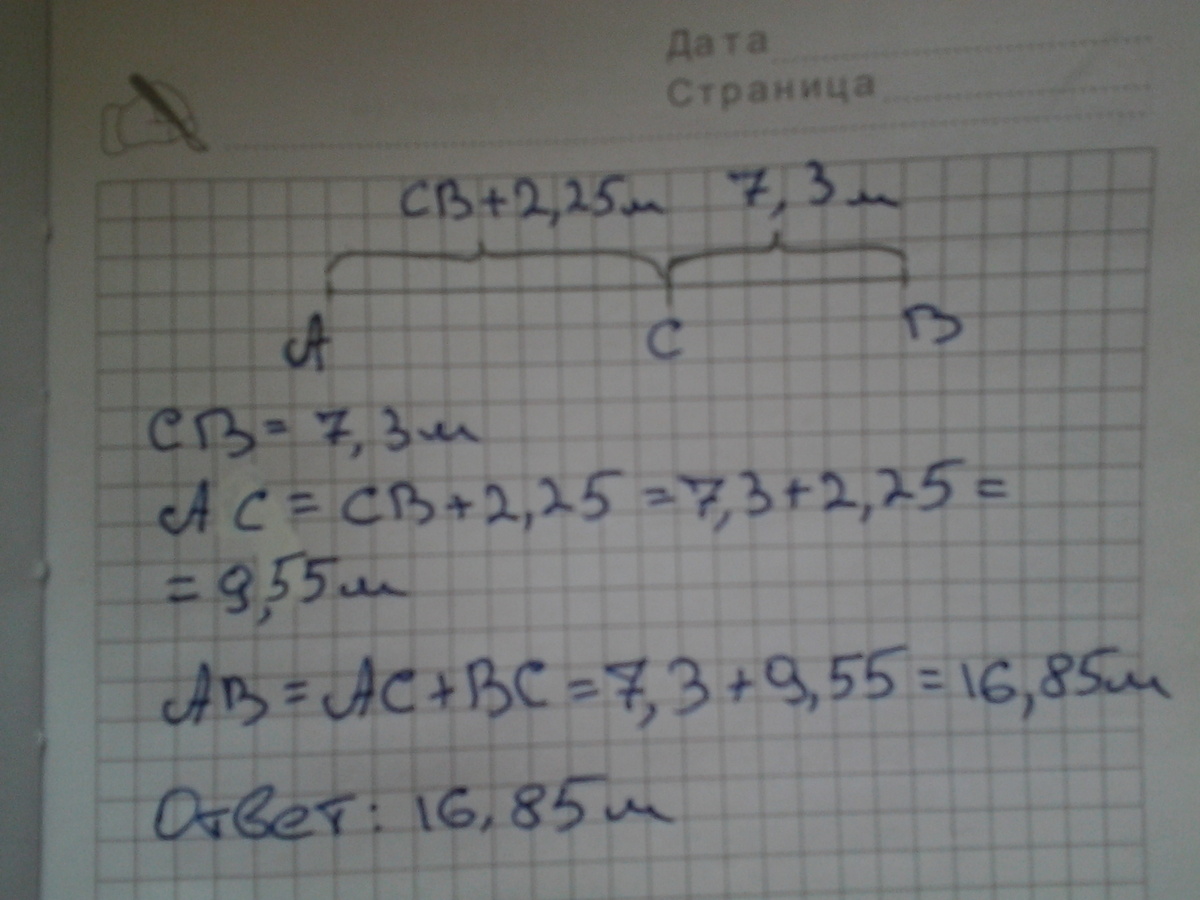 Дата
Страница
CB+2,25м 7,3м
A C B
CB= 7,3м
AC = CB+2,25 =7,3+2,25=
= 9,55м
AB = AC+BC =7,3+9,55=16,85м
Ответ: 16,85м